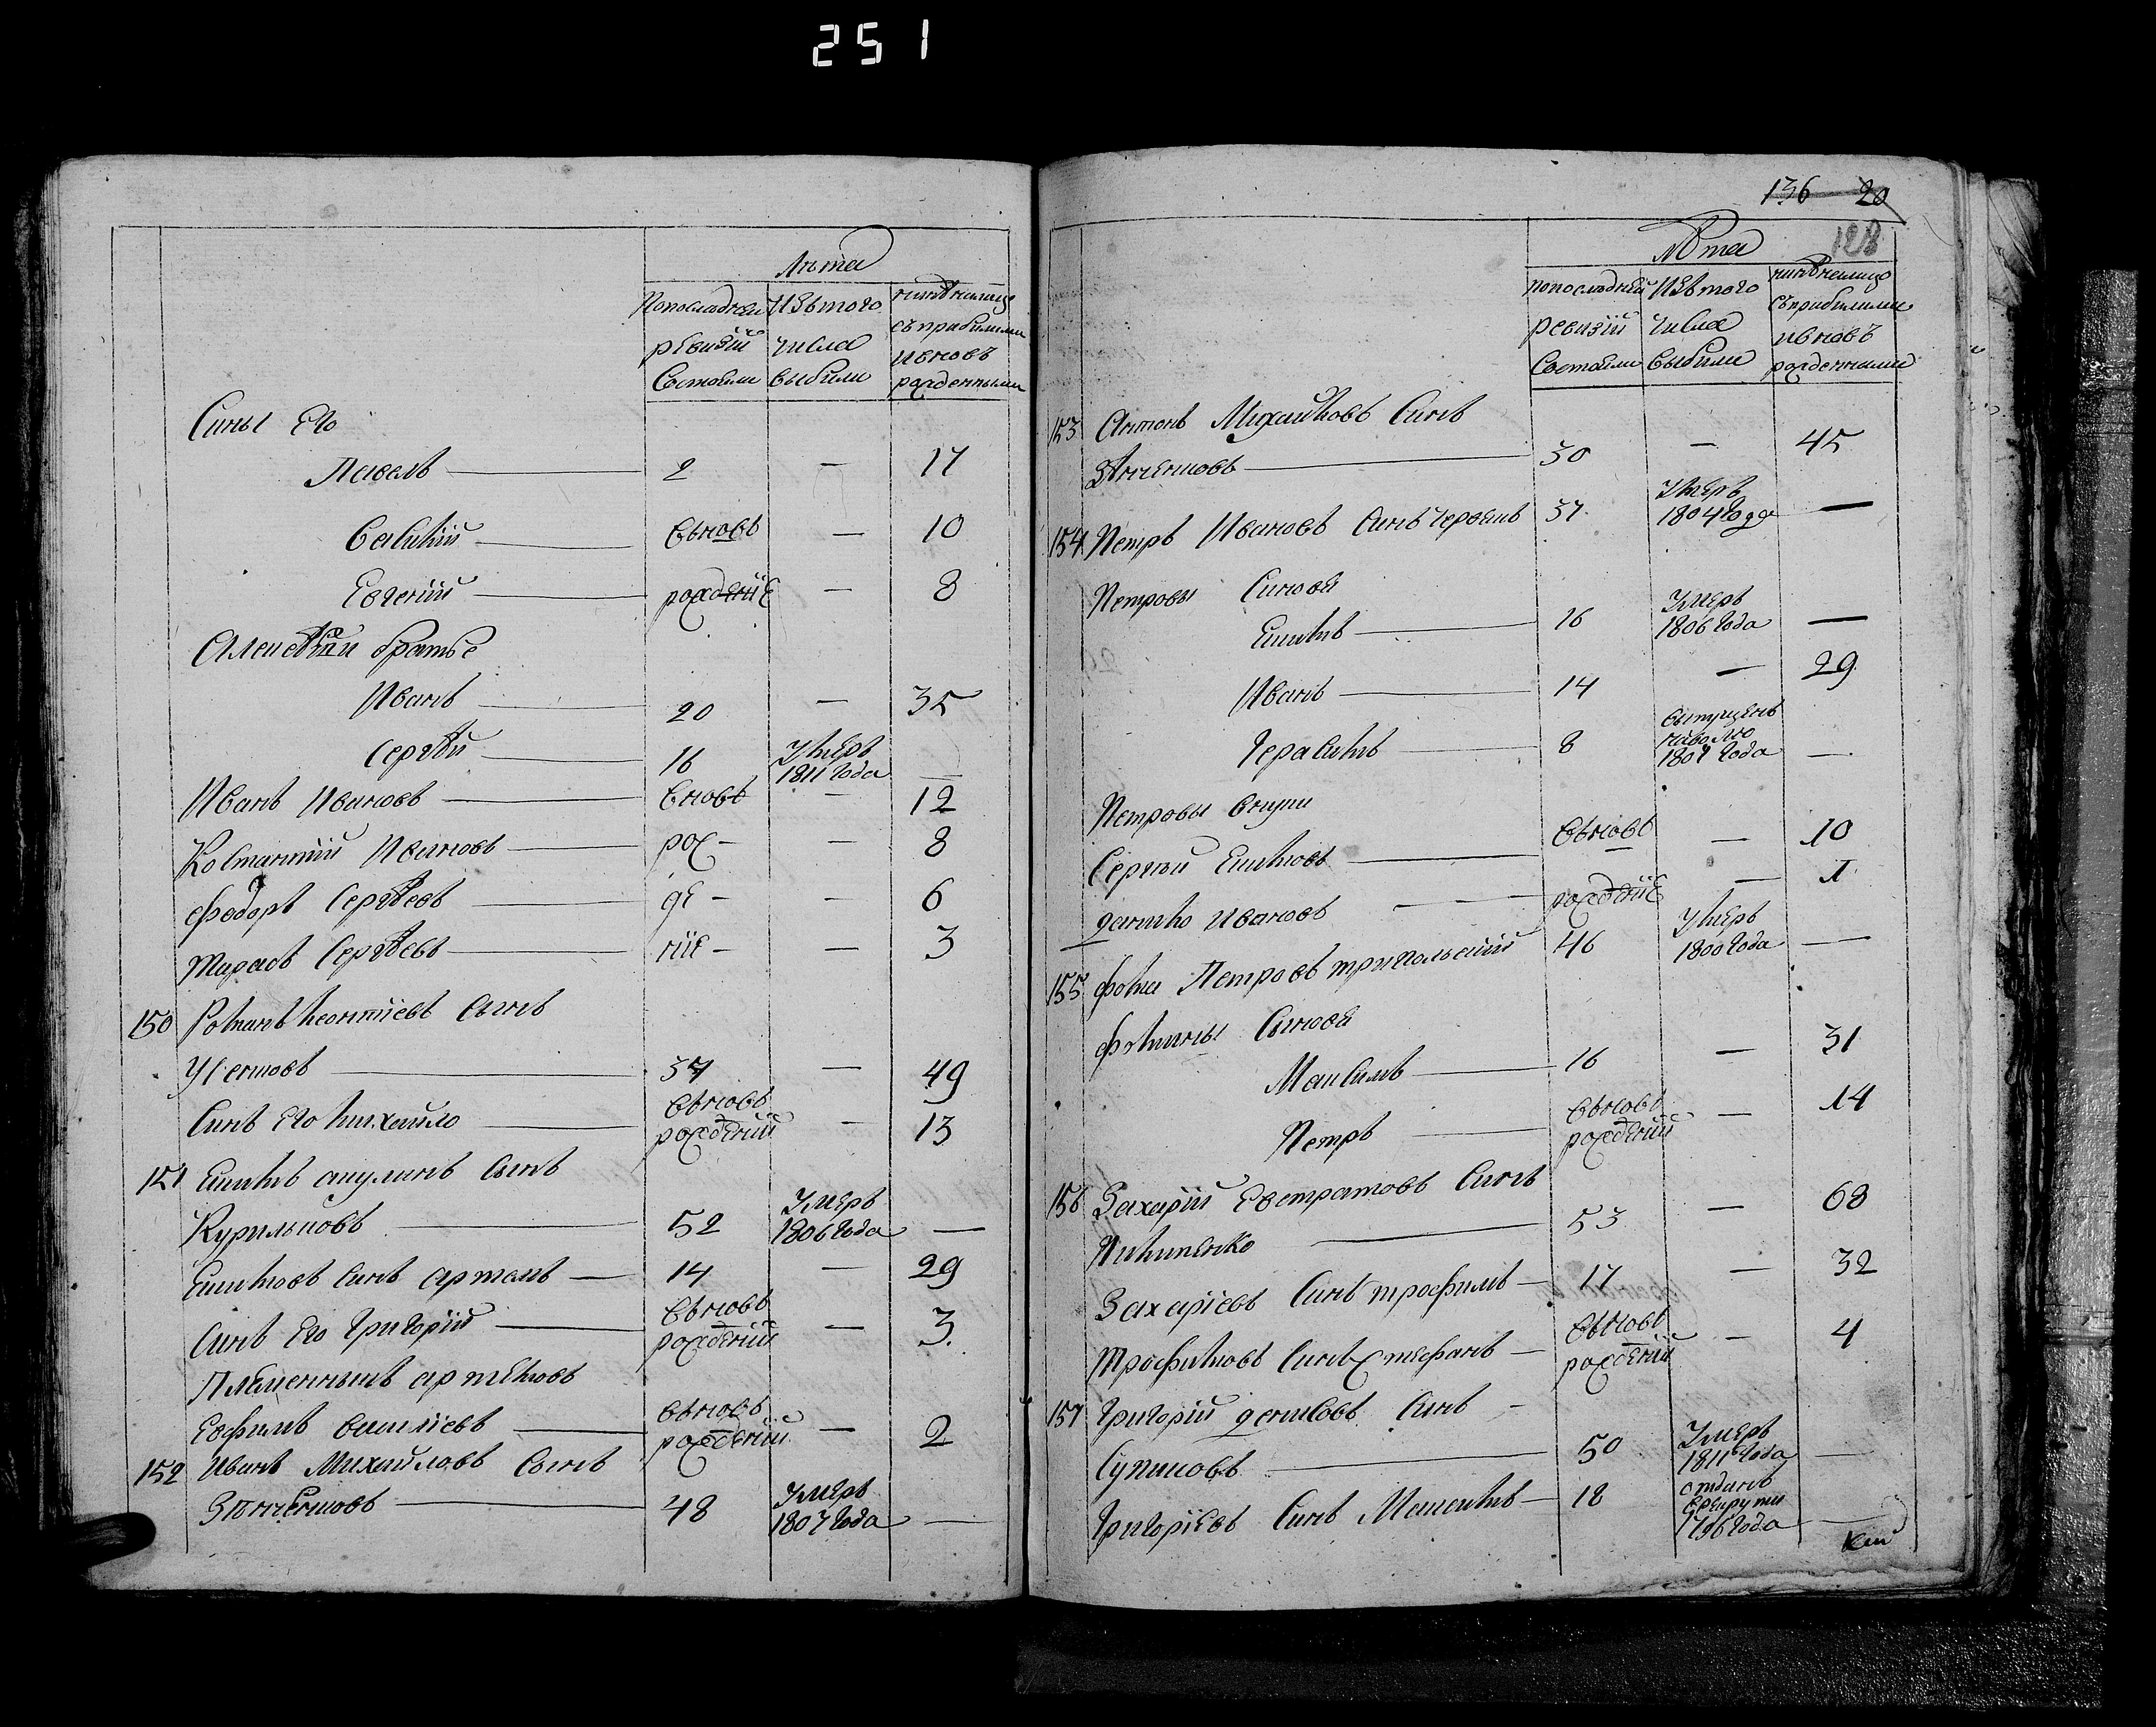 251
Лѣта
Попоследнеи ревизіи Состояли
Изъ того числа выбыли
ныне налицо съ прибылыми и вновь рожденными
Сины Его
Павелъ 2 — 17
Савелий вьновь — 10
Евгений рожденіе — 8
Алексѣи братьѣ
Иванъ 20 — 35
Сергѣй 16 Умеръ 1811 года —
Иванъ Ивановъ вновь — 12
Костантий Ивановъ рож- — 8
Федоръ Сергѣевъ де- — 6
Тарасъ Сергѣевъ ніе- — 3
150 Романъ Леонтіевъ Сынъ
Усенковъ 34 — 49
Синъ Его Михайло вьновь рожденій — 13
151 Екимъ Сынъ
Курилковъ 52 Умеръ 1806 года —
Екимовъ Синъ Артемъ 14 — 29
Синъ Его Григорій вьновь рожденій — 3
Племенныкъ артемовъ
Евфимъ василіевъ вьновь рожденій — 2
152 Иванъ Михайловъ Сынъ
48 Умеръ 1807 года —
136 20
128
Лѣта
Попослѣдней ревизіи Состояли
Изъ того числа выбыли
нинѣ налицо съ прибилими и вновъ рожденними
153 Антонъ Михайловъ Синъ
30 — 45
154 Петръ Ивановъ Синъ Червякъ 37 Умеръ 1804 года —
Петровы Синовя
Екимъ 16 Умеръ 1806 года —
Иванъ 14 — 29
Герасимъ 8 выпущенъ на волю 1807 года —
Петровы внуки
Сергій Екимовъ вьновь — 10
данило Ивановъ рожденіе — 1
155 Фома Петровъ трипольский 46 Умеръ 1800 года —
Фомины Сыновя
Максимъ 16 — 31
Петръ вьновь рожденій — 14
156 Захарій Евстратовъ Синъ
Пилипенко 53 — 68
Захаріевъ Синъ трофимъ 17 — 32
Трофимовъ Синъ Стефанъ вьновь рожденій — 4
157 Григорій денисовъ Синъ
Супиковъ 50 Умеръ 1811 года —
Григоріевъ Синъ 18 отданъ в рекруты 1796 года —